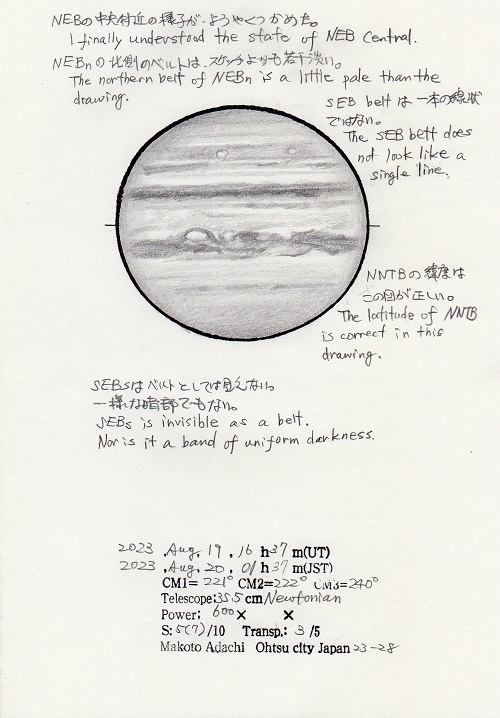 NEBの中央付近の様子が、ようやくつかめた。
I finally understood the state of NEB Central.
NEBnの北側のベルトは、スケッチよりも若干淡い。
The northern belt of NEBn is a little pale than the
drawing.
SEB beltは一本の線状
ではない。
The SEB belt does
not look like a
single line.
NNTBの緯度は
この図が正しい。
The latitude of NNTB
is correct in this
drawing.
SEBsはベルトとしては見えない。
一様な暗部でもない。
SEBs is invisible as a belt.
Nor is it a band of uniform darkness.
2023 .Aug. 19 . 16 h 37 m(UT)
2023 .Aug. 20 . 01 h 37 m(JST)
CM1= 221° CM2=222° CM3=240°
Telescope:35.5 cm Newtonian
Power: 600 × ×
S: 5(7) /10 Transp.: 3 /5
Makoto Adachi Ohtsu city Japan 23-28